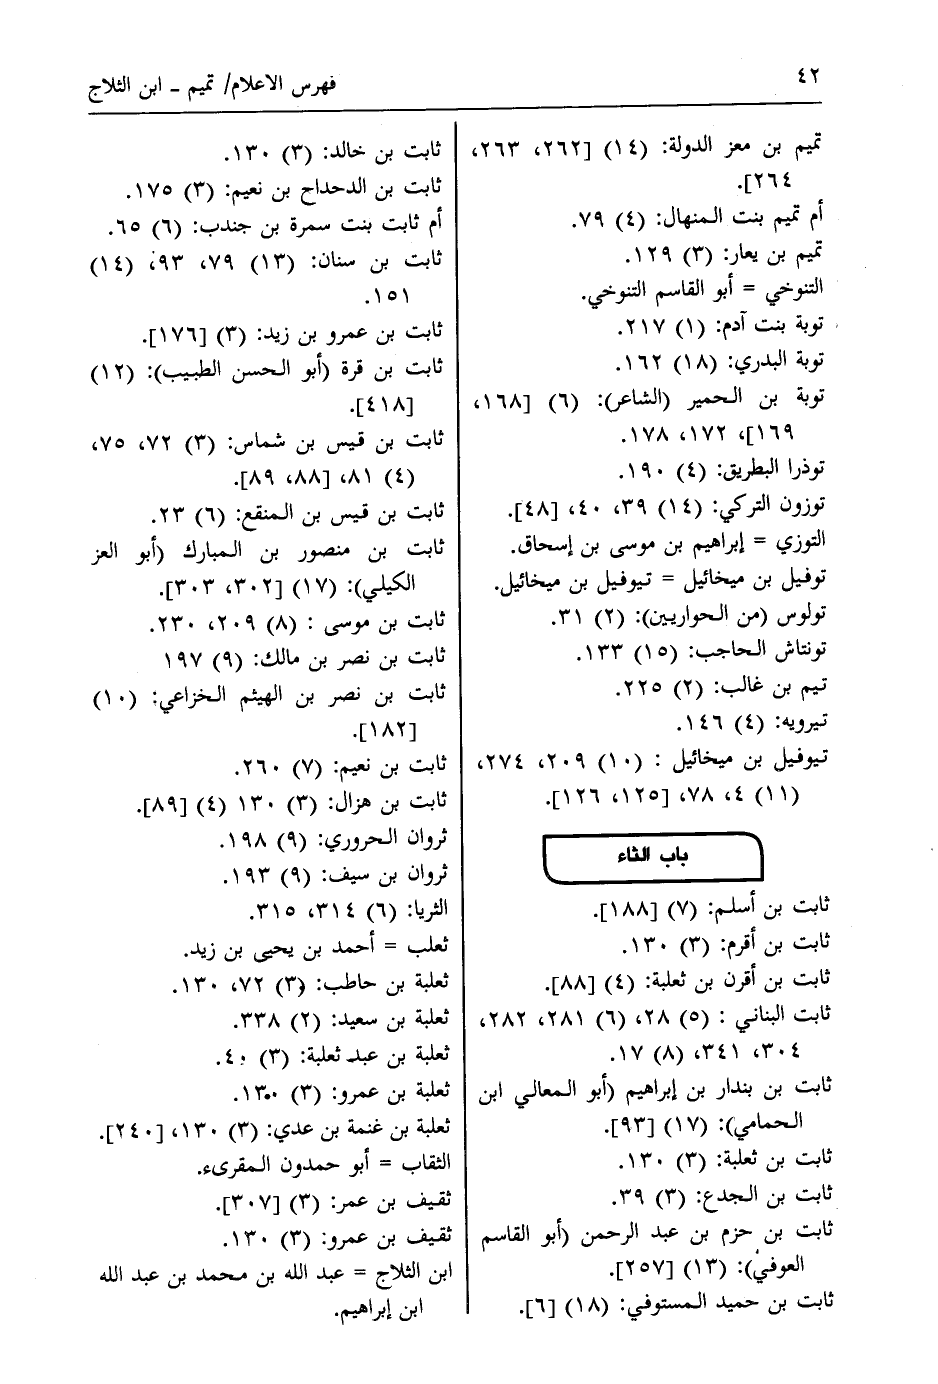 ٤٢
فهرس الاعلام/ تميم ـ ابن الثلاج
تميم بن معز الدولة: (١٤) [٢٦٢، ٢٦٣،
٢٦٤].
أم تميم بنت المنهال: (٤) ٧٩.
تميم بن يعار: (٣) ١٢٩.
التنوخي = أبو القاسم التنوخي.
توبة بنت آدم: (١) ٢١٧.
توبة البدري: (١٨) ١٦٢.
توبة بن الحمير (الشاعر): (٦) [١٦٨،
١٦٩]، ١٧٢، ١٧٨.
توذرا البطريق: (٤) ١٩٠.
توزون التركي: (١٤) ٣٩، ٤٠، [٤٨].
التوزي = إبراهيم بن موسى بن إسحاق.
توفيل بن ميخائيل = تيوفيل بن ميخائيل.
تولوس (من الحواريين): (٢) ٣١.
تونتاش الحاجب: (١٥) ١٣٣.
تيم بن غالب: (٢) ٢٢٥.
تيرويه: (٤) ١٤٦.
تيوفيل بن ميخائيل : (١٠) ٢٠٩، ٢٧٤،
(١١) ٤، ٧٨، [١٢٥، ١٢٦].
باب الثاء
ثابت بن أسلم: (٧) [١٨٨].
ثابت بن أقرم: (٣) ١٣٠.
ثابت بن أقرن بن ثعلبة: (٤) [٨٨].
ثابت البناني : (٥) ٢٨، (٦) ٢٨١، ٢٨٢،
٣٠٤، ٣٤١، (٨) ١٧.
ثابت بن بندار بن إبراهيم (أبو المعالي ابن
الحمامي): (١٧) [٩٣].
ثابت بن ثعلبة: (٣) ١٣٠.
ثابت بن الجدع: (٣) ٣٩.
ثابت بن حزم بن عبد الرحمن (أبو القاسم
العوفي): (١٣) [٢٥٧].
ثابت بن حميد المستوفي: (١٨) [٦].
ثابت بن خالد: (٣) ١٣٠.
ثابت بن الدحداح بن نعيم: (٣) ١٧٥.
أم ثابت بنت سمرة بن جندب: (٦) ٦٥.
ثابت بن سنان: (١٣) ٧٩، ٩٣، (١٤)
١٥١.
ثابت بن عمرو بن زيد: (٣) [١٧٦].
ثابت بن قرة (أبو الحسن الطبيب): (١٢)
[٤١٨].
ثابت بن قيس بن شماس: (٣) ٧٢، ٧٥،
(٤) ٨١، [٨٨، ٨٩].
ثابت بن قيس بن المنقع: (٦) ٢٣.
ثابت بن منصور بن المبارك (أبو العز
الكيلي): (١٧) [٣٠٢، ٣٠٣].
ثابت بن موسى : (٨) ٢٠٩، ٢٣٠.
ثابت بن نصر بن مالك: (٩) ١٩٧
ثابت بن نصر بن الهيثم الخزاعي: (١٠)
[١٨٢].
ثابت بن نعيم: (٧) ٢٦٠.
ثابت بن هزال: (٣) ١٣٠ (٤) [٨٩].
ثروان الحروري: (٩) ١٩٨.
ثروان بن سيف: (٩) ١٩٣.
الثريا: (٦) ٣١٤، ٣١٥.
ثعلب = أحمد بن يحيى بن زيد.
ثعلبة بن حاطب: (٣) ٧٢، ١٣٠.
ثعلبة بن سعيد: (٢) ٣٣٨.
ثعلبة بن عبد ثعلبة: (٣) ٤٠.
ثعلبة بن عمرو: (٣) ١٣٠.
ثعلبة بن غنمة بن عدي: (٣) ١٣٠، [٢٤٠].
الثقاب = أبو حمدون المقرىء.
ثقيف بن عمر: (٣) [٣٠٧].
ثقيف بن عمرو: (٣) ١٣٠.
ابن الثلاج = عبد الله بن محمد بن عبد الله
ابن إبراهيم.